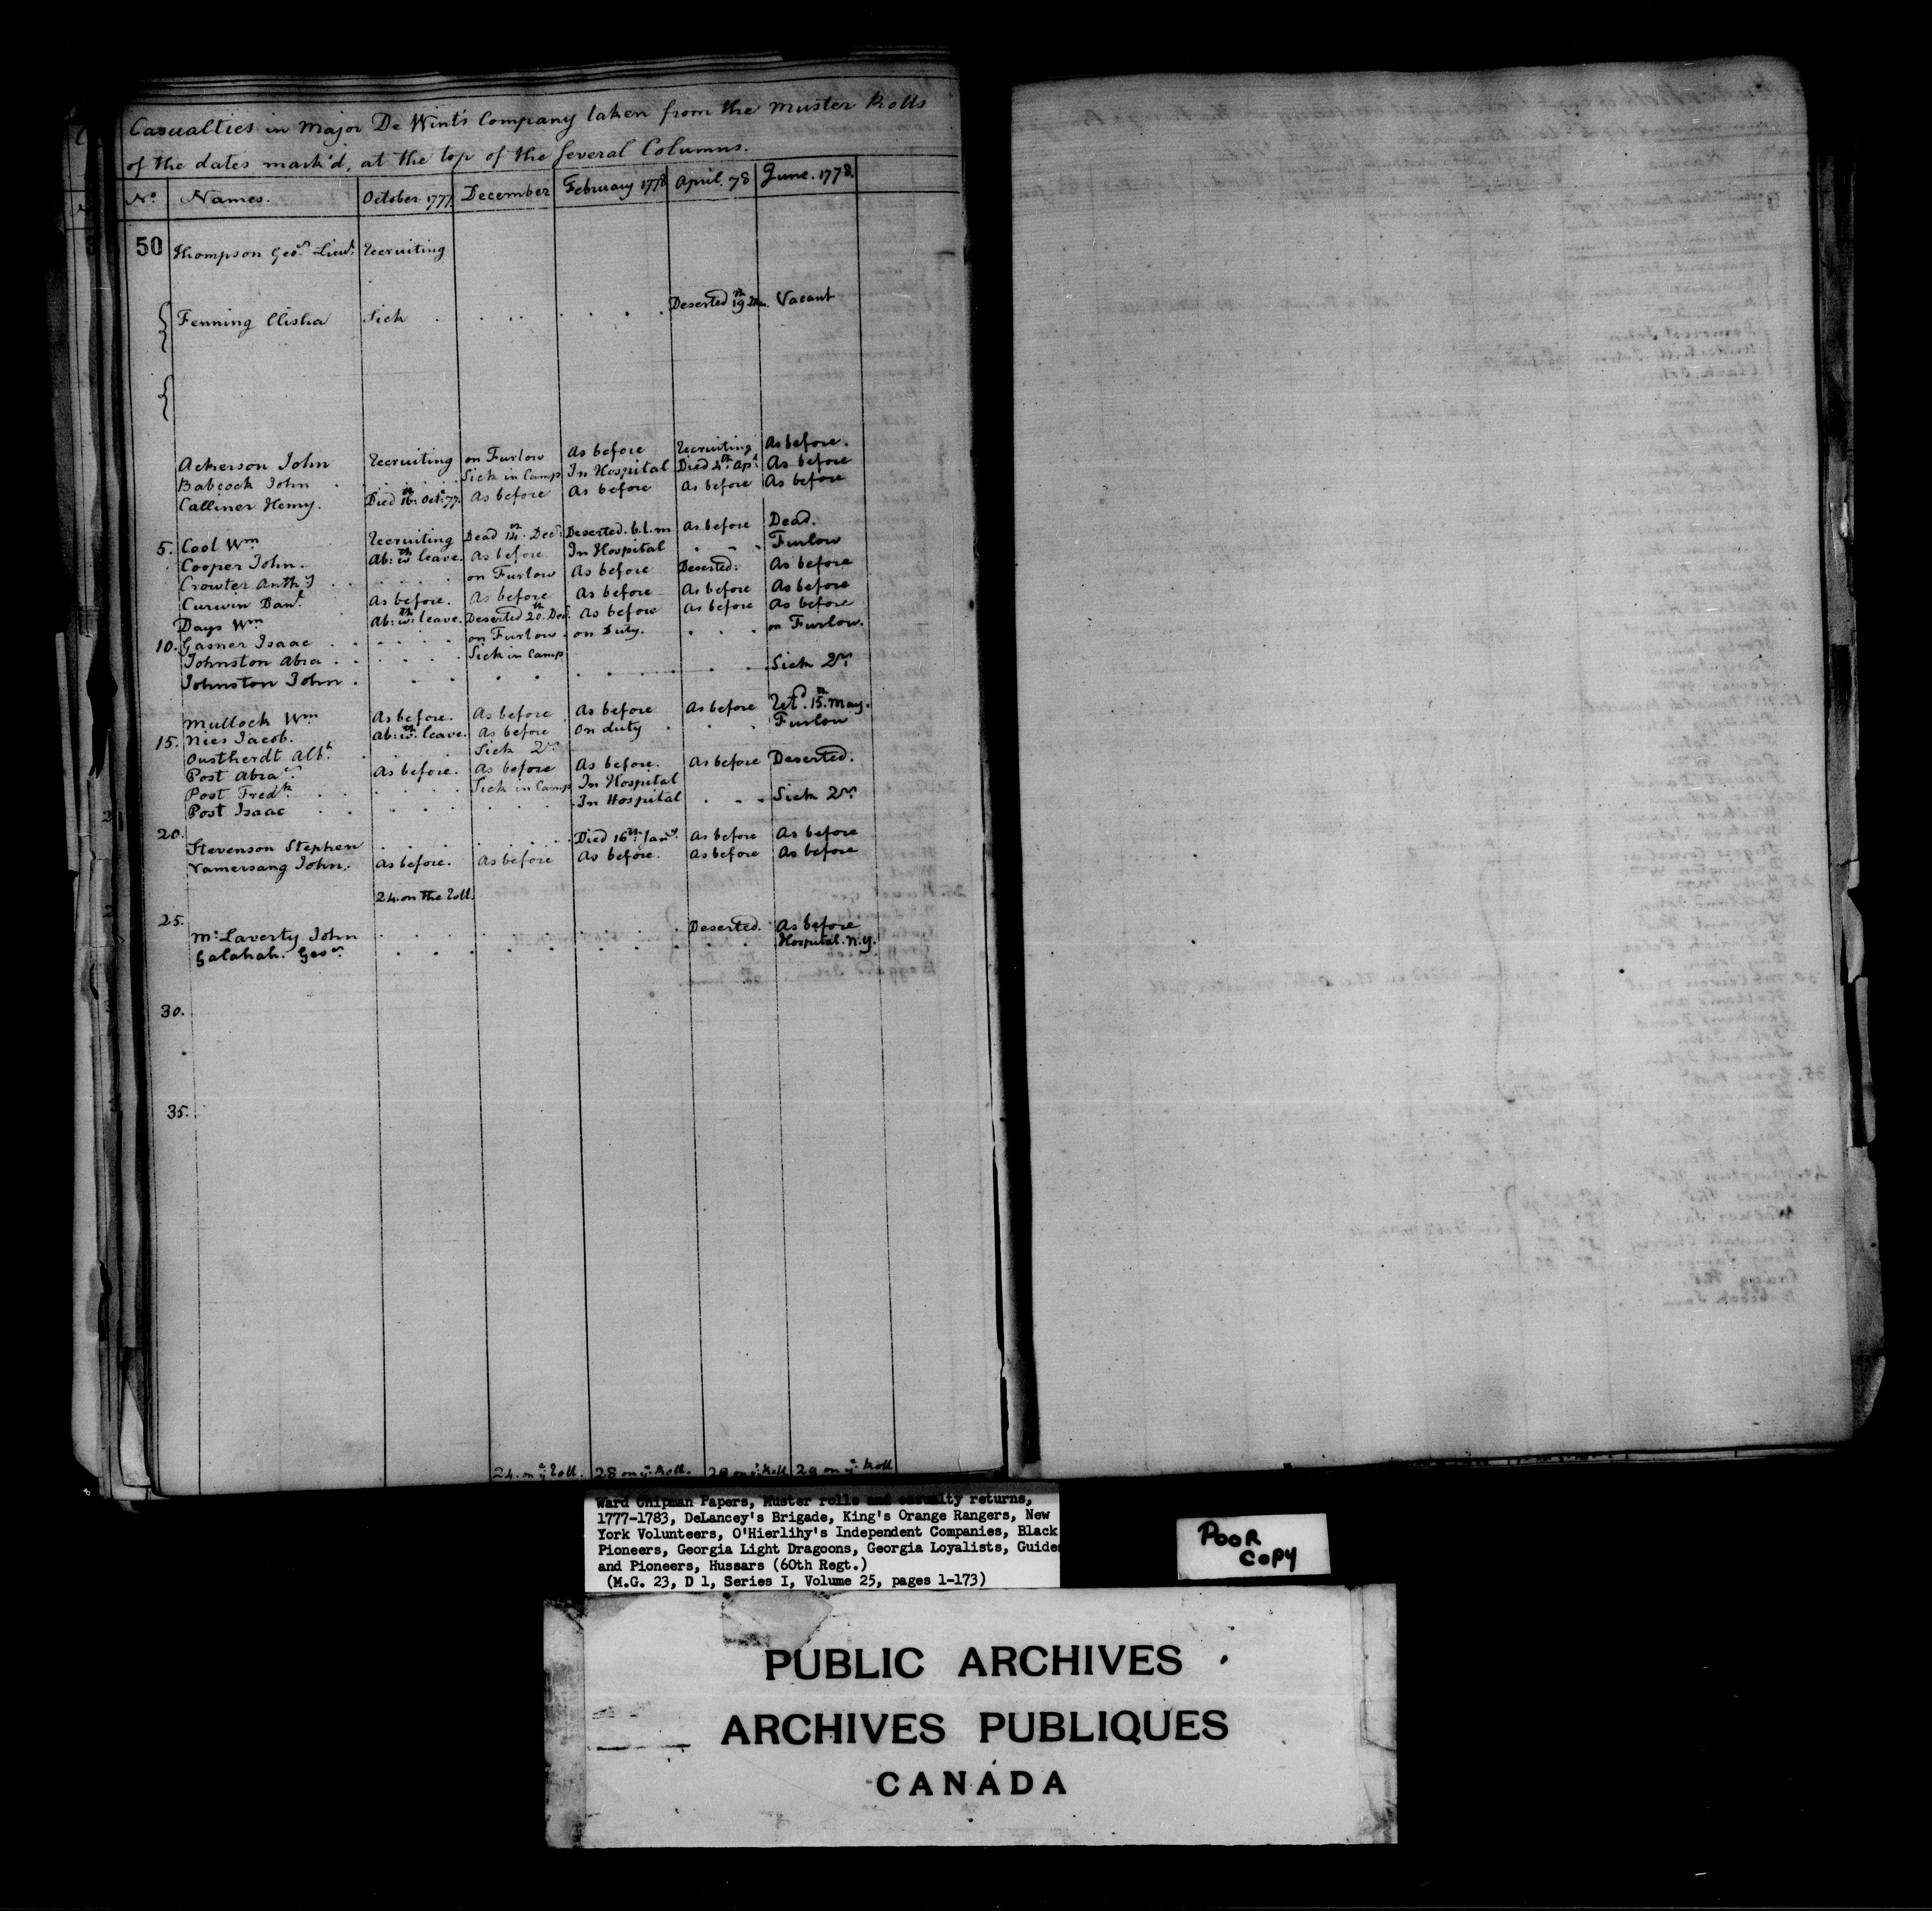 Casualties in Major De Wint's Company taken from the Muster Rolls
of the dates mark'd, at the top of the several Columns.
No. Names. October 1777. December February 1778 April. 78 June. 1778.
50 Thompson Geo: Lieut: Recruiting
Fenning Elisha Sick . . . . . . . Deserted 19th Vacant
Ackerson John Recruiting on Furlow As before Recruiting As before.
Babcock John . . . . . Sick in Camp In Hospital Died 4th Apl As before
Calliner Henry. Died 16th Oct: 77. As before As before As before As before
5. Cool Wm Recruiting Dead 14th Decr: Deserted. b.l.m As before Dead.
Cooper John. Ab: wth leave. As before In Hospital . . . Furlow
Crowter Anthy . . . . . . on Furlow As before Deserted: As before
Curwin Danl As before. As before As before As before As before
Days Wm Ab: wth leave. Deserted 20th Decr. As before As before As before
10. Gasner Isaac . . . . . on Furlow. on Duty. . . . on Furlow.
Johnston Abra . . . . . . Sick in Camp
Johnston John . . . . . . . . . . . Sick Qrs
Mullock Wm As before. As before As before As before Retd. 15th May.
15. Nies Jacob. Ab: wth leave. As before on duty . . . Furlow
Oustherdt Albt . . . Sick Qrs
Post Abram As before. As before As before. As before Deserted.
Post Fredk . . . . . . Sick in Camp In Hospital
Post Isaac . . . . . . In Hospital . . . Sick Qrs
20.
Stevenson Stephen . . . . . . . . Died 16th Jany. As before As before
Vamersang John. As before. As before As before. As before As before
24. on the Roll.
25.
McLaverty John . . . . . . . . . Deserted. As before
Galahah. Geo: . . . . . . . . Hospital. N.Y.
30.
35.
24. on ye Roll. 28 on ye Roll. 29 on ye Roll 29 on ye Roll
Ward Chipman Papers, Muster rolls and casualty returns,
1777-1783, DeLancey's Brigade, King's Orange Rangers, New
York Volunteers, O'Hierlihy's Independent Companies, Black
Pioneers, Georgia Light Dragoons, Georgia Loyalists, Guides
and Pioneers, Hussars (60th Regt.)
(M.G. 23, D 1, Series I, Volume 25, pages 1-173)
POOR
COPY
PUBLIC ARCHIVES
ARCHIVES PUBLIQUES
CANADA